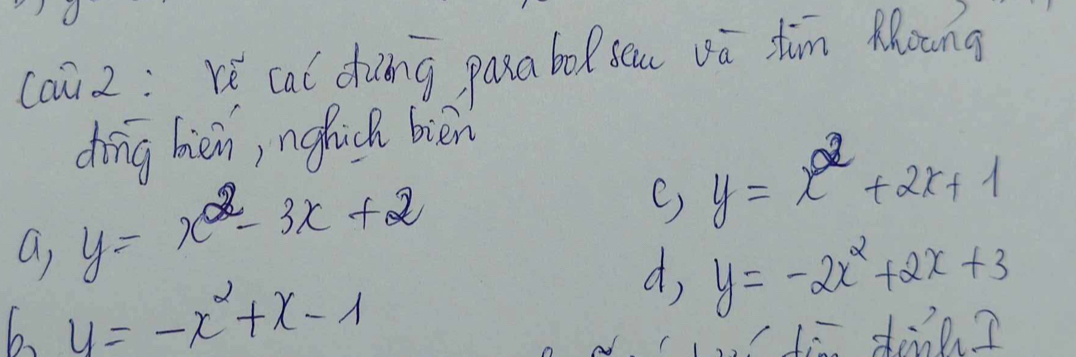 Câu 2 : vẽ các đường parabol sau và tìm khoảng
đồng biến, nghịch biến
a, y = x² - 3x + 2
c, y = x² + 2x + 1
b, y = -x² + x - 1
d, y = -2x² + 2x + 3
tìm đỉnh I